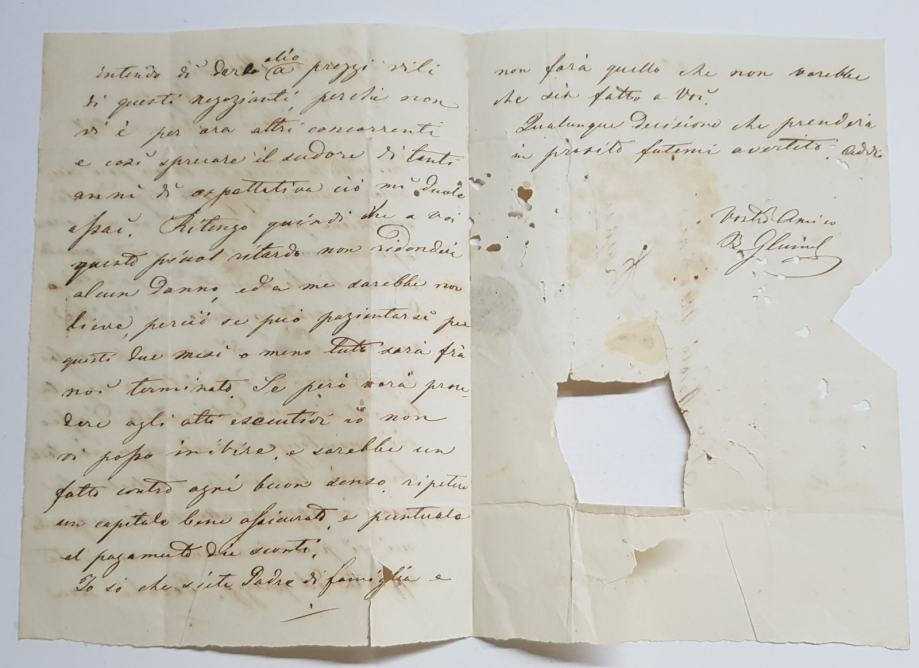 intendo di darlo olio a prezzi vili
di questi negozianti perchè non
vi è per ora altri concorrenti
e così sprecare il sudore di tanti
anni di aspettativa ciò mi duole
assai. Ritengo quindi che a voi
questo ritardo non ridonderà
alcun danno, ed a me sarebbe non
lieve, perciò se può pazientarsi per
questi due mesi o meno tutto sarà frà
noi terminato. Se però vorà proce-
dere agli atti esecutivi io non
vi posso inibire, e sarebbe un
fatto contro ogni buon senso, ripetere
un capitale bene assicurato, e puntuale
el pagamento dei sconti.
Io sò che siete Padre di famiglia e
non farà quello che non vorebbe
che sia fatto a Voi.
Qualunque decisione che prenderà
in proposito fatemi avertito. Addio
Vostro Amico